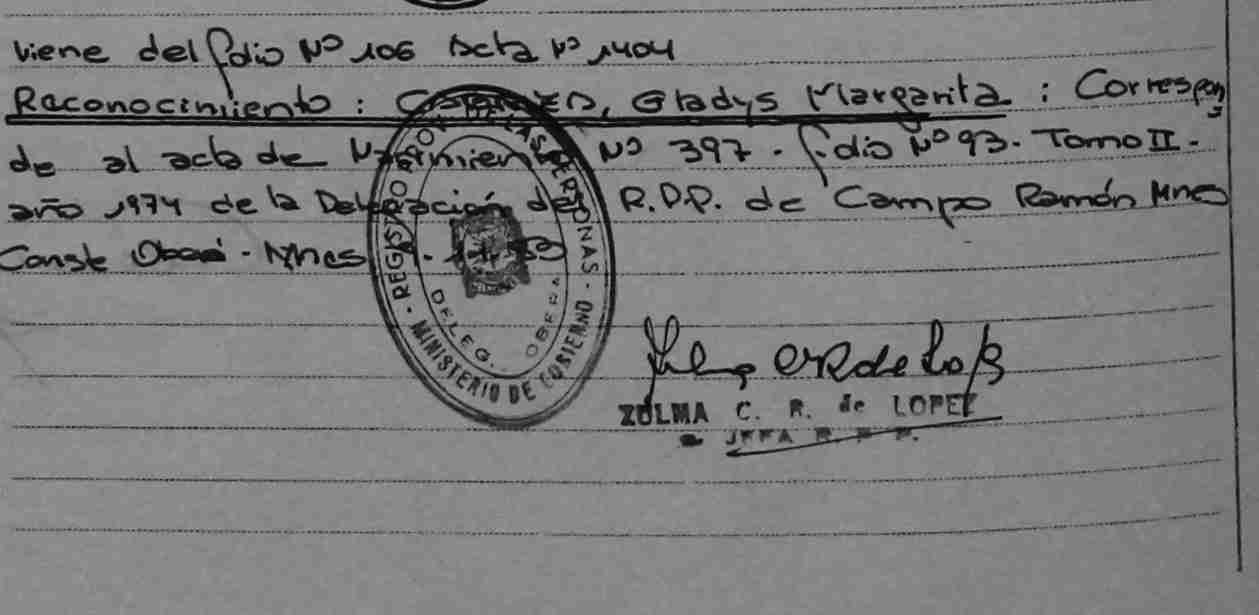 viene del folio Nº 106 Acta Nº 1404
Reconocimiento: Gladys Margarita: Correspon
de al acta de Nacimiento Nº 397. folio Nº 93. Tomo II.
año 1974 de la Delegación del R.P.P. de Campo Ramón Mnes
Conste Oberá - Mnes
REGISTRO PROV. DE LAS PERSONAS - MINISTERIO DE GOBIERNO
DELEG. OBERA
ZULMA C. R. de LOPEZ
JEFA R. P. P.